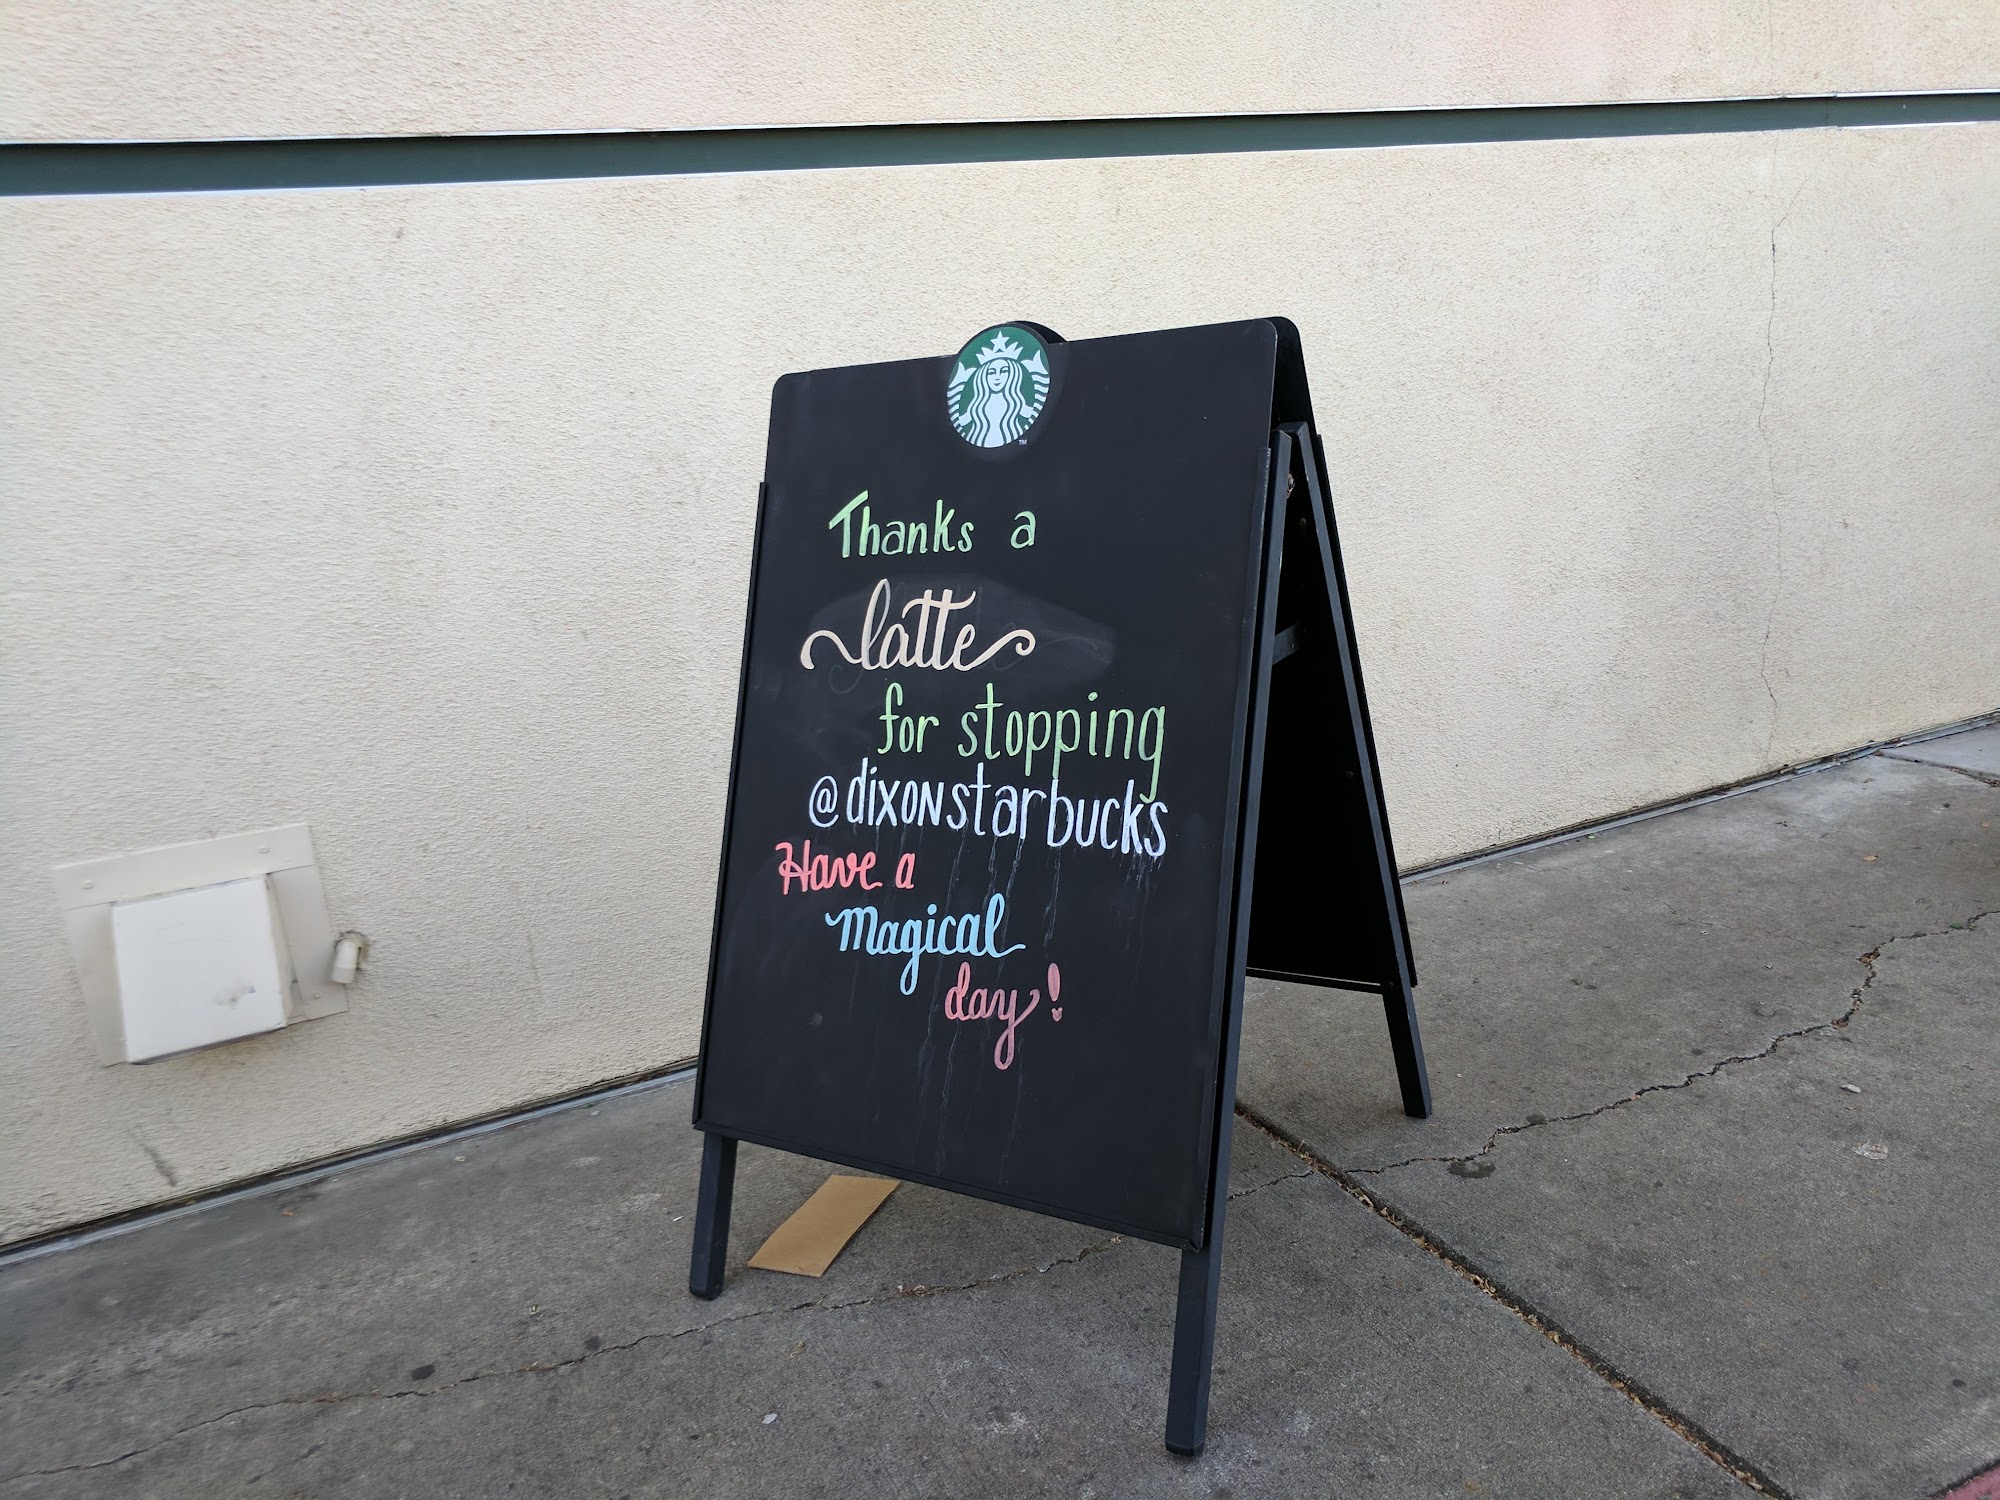 TM
Thanks a
latte
for stopping
@dixonstarbucks
Have a
magical
day!